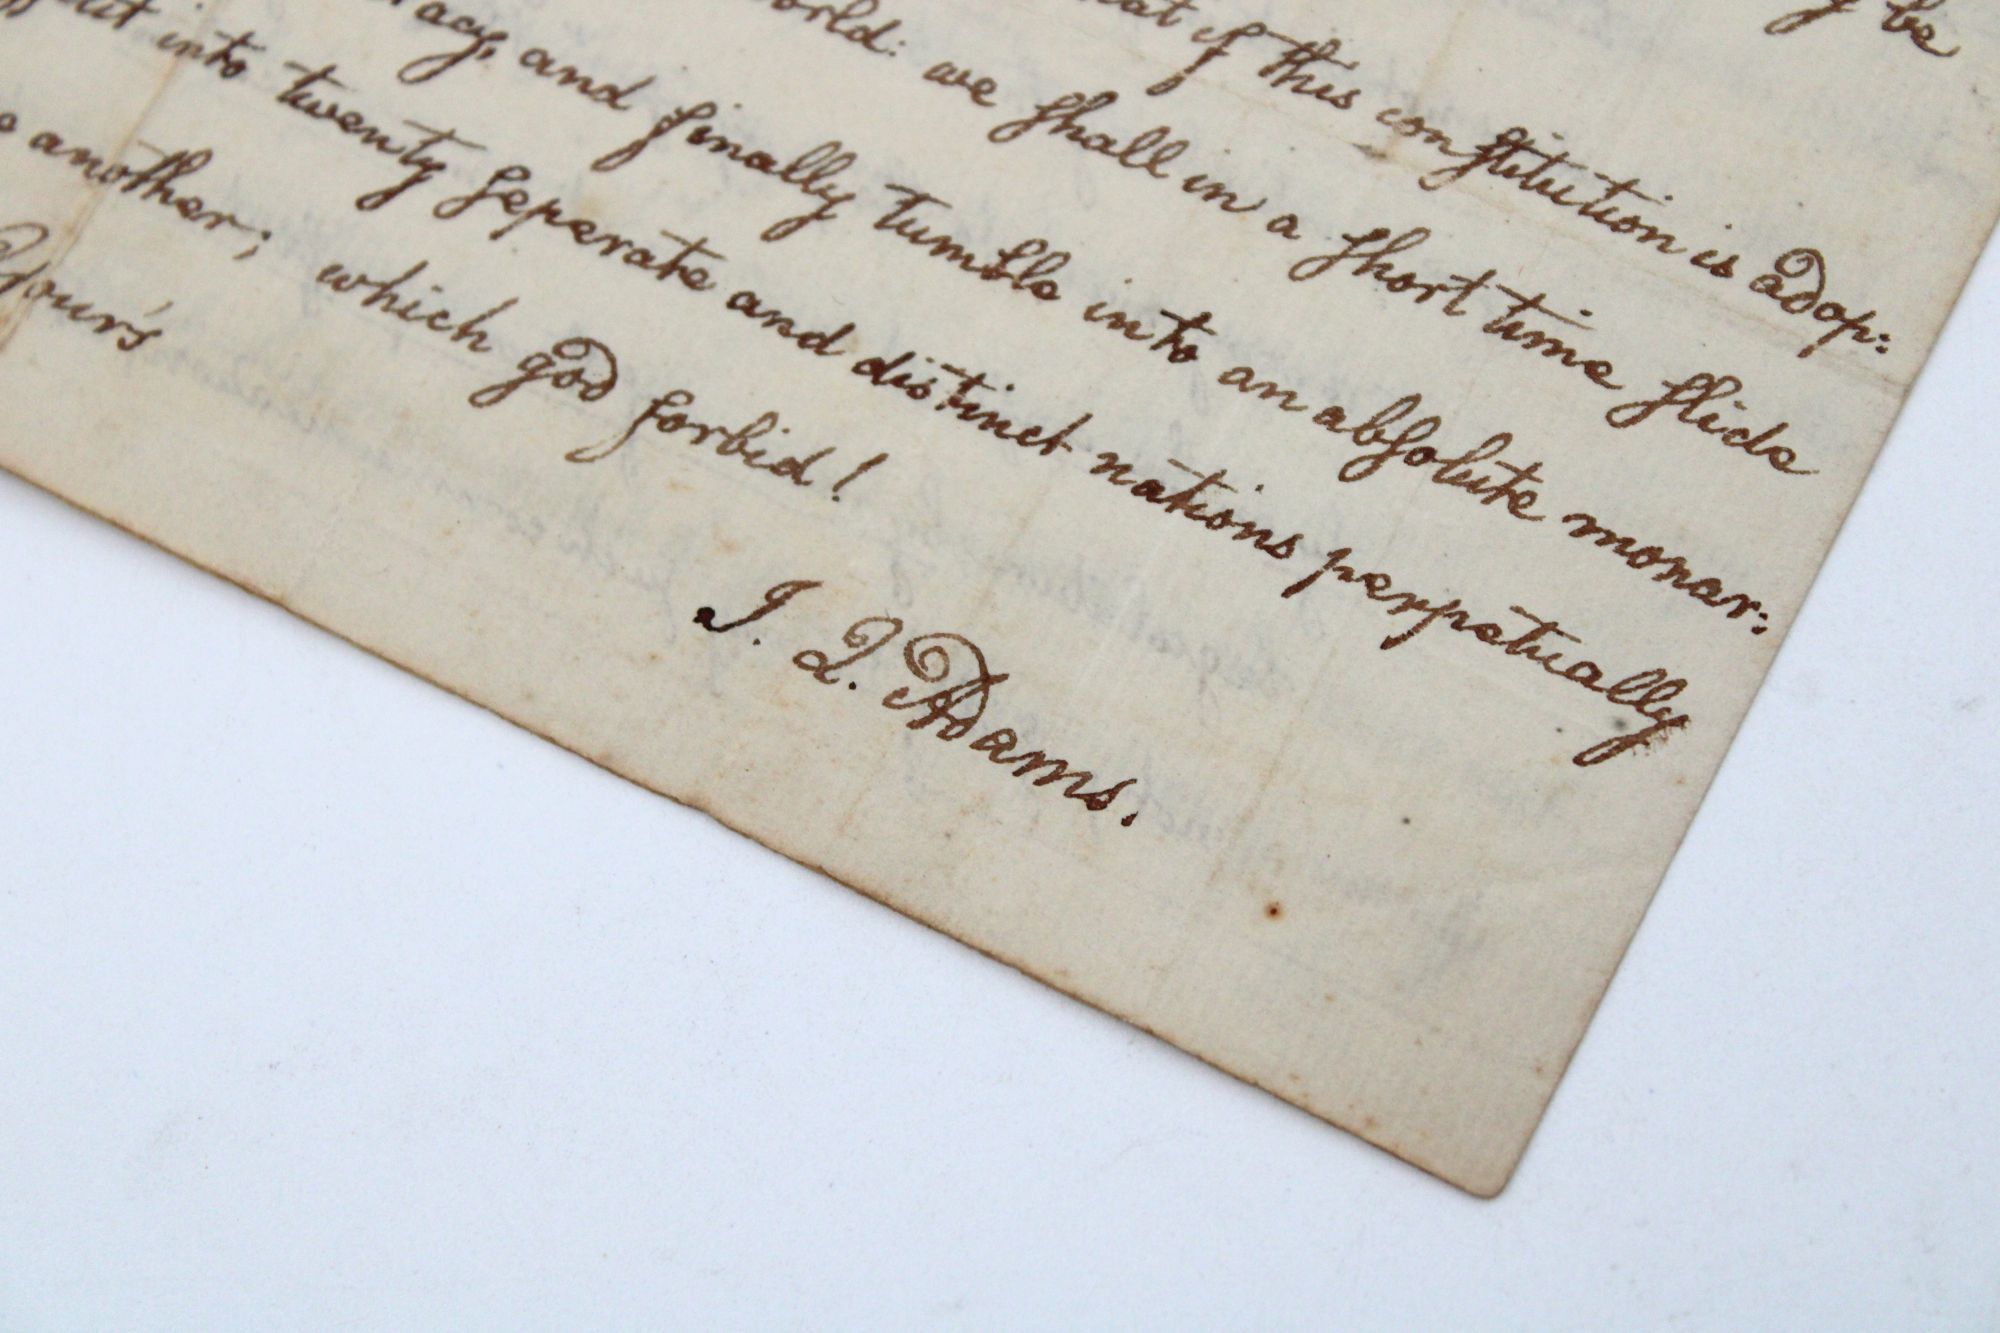 be
if this conſtitution is adop:
world: we ſhall in a ſhort time ſlide
and finally tumble into an abſolute monar:
into twenty ſeperate and distinct nations perpetually
another; which god forbid!
Your's
J. Q. Adams.